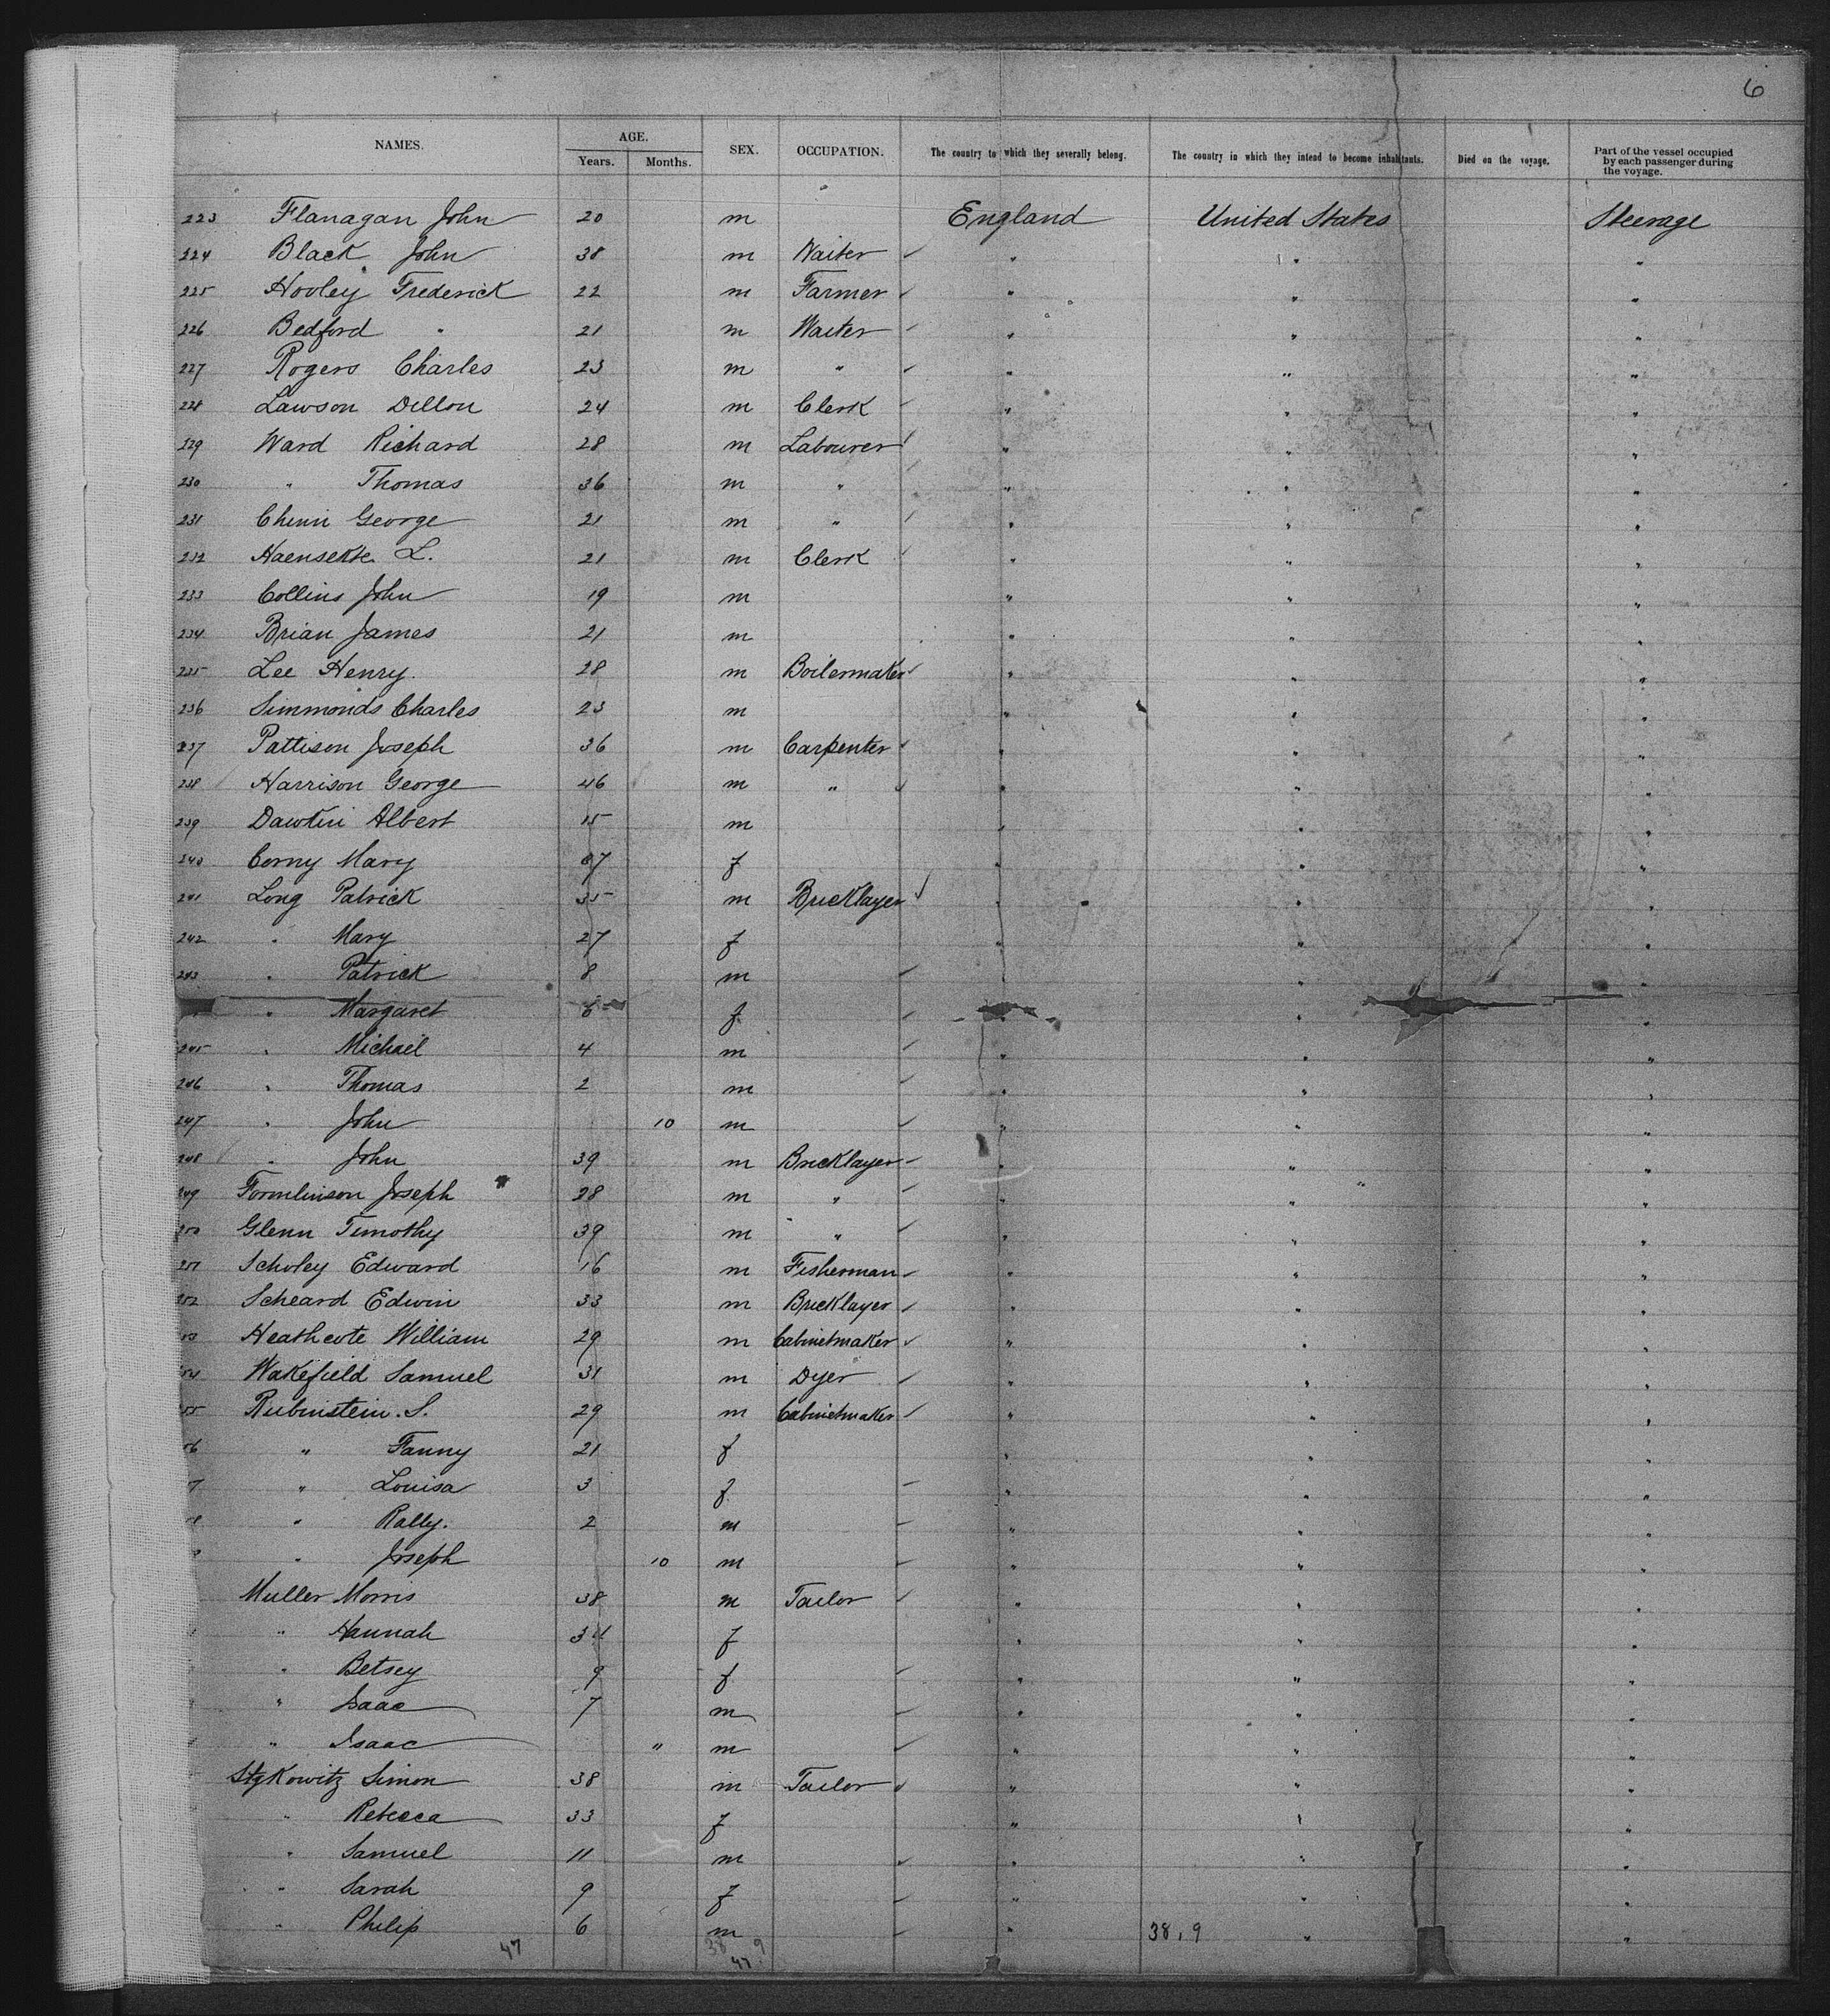 6
NAMES. AGE. SEX. OCCUPATION. The country to which they severally belong. The country in which they intend to become inhabitants. Died on the voyage. Part of the vessel occupied by each passenger during the voyage.
Years. Months.
223 Flanagan John 20 m England United States Steerage
224 Black John 38 m Waiter " " "
225 Hooley Frederick 22 m Farmer " " "
226 Bedford " 21 m Waiter " " "
227 Rogers Charles 23 m " " " "
228 Lawson Dillon 24 m Clerk " " "
229 Ward Richard 28 m Labourer " " "
230 " Thomas 36 m " " " "
231 George 21 m " " " "
232 L. 21 m Clerk " " "
233 Collins John 19 m " " "
234 Brian James 21 m " " "
235 Lee Henry. 28 m Boilermaker " " "
236 Simmonds Charles 23 m " " "
237 Pattison Joseph 36 m Carpenter " " "
238 Harrison George 46 m " " " "
239 Albert 15 m " " "
240 Corny Mary f " " "
241 Long Patrick 35 m Bricklayer " " "
242 " Mary 27 f " " "
243 " Patrick 8 m " " "
" Margaret 6 f " " "
245 " Michael 4 m " " "
246 " Thomas 2 m " " "
247 " John 10 m " " "
248 " John 39 m Bricklayer " " "
249 Formlinson Joseph 28 m " " " "
250 Glenn Timothy 39 m " " " "
251 Scholey Edward 16 m Fisherman " " "
252 Scheard Edwin 33 m Bricklayer " " "
Heathcote William 29 m Cabinetmaker " " "
Wakefield Samuel 31 m Dyer " " "
Rubinstein. S. 29 m Cabinetmaker " " "
" Fanny 21 f " " "
" Louisa 3 f " " "
" Rally. 2 m " " "
" Joseph 10 m " " "
Muller Morris 38 m Tailor " " "
" Hannah f " " "
" Betsey 9 f " " "
" Isaac 7 m " " "
" Isaac " m " " "
Simon 38 m Tailor " " "
" Rebecca 33 f " " "
" Samuel 11 m " " "
" Sarah 9 f " " "
" Philip 6 m " 38, 9 " "
47 38 9
47